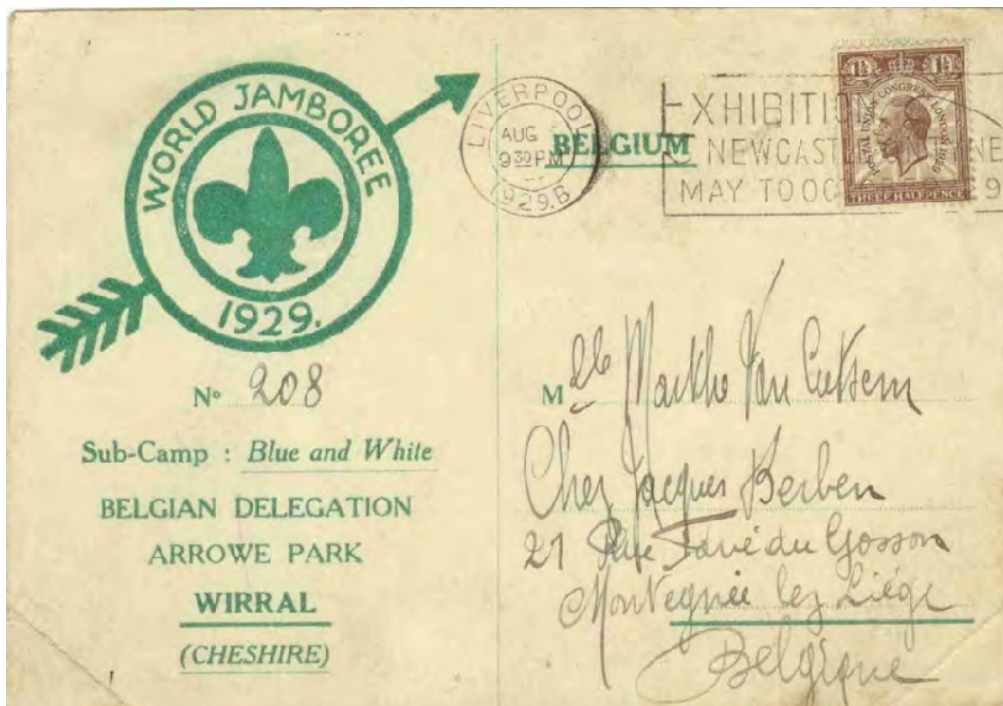 WORLD JAMBOREE
1929.
Nº 208
Sub-Camp : Blue and White
BELGIAN DELEGATION
ARROWE PARK
WIRRAL
(CHESHIRE)
LIVERPOOL
AUG
9 30 PM
1929.B
BELGIUM
EXHIBITION
NEWCASTLE
MAY TO OC
1½ 1½
POSTAL UNION CONGRESS LONDON 1929
THREE HALF PENCE
Mlle Marthe Van Cutsem
Chez Jacques Berben
21 Rue du Gosson
Montegnée lez Liége
Belgique